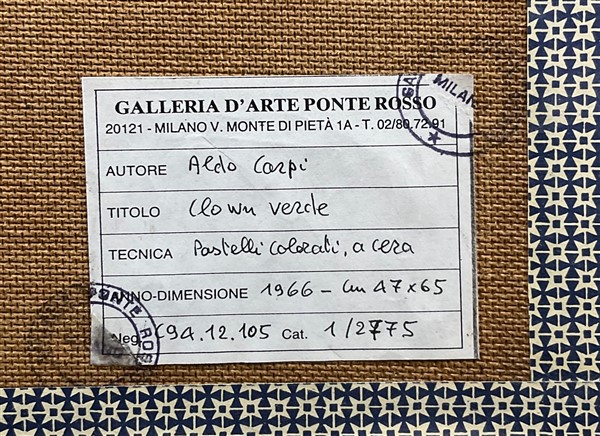 GALLERIA D'ARTE PONTE ROSSO
20121 - MILANO V. MONTE DI PIETÀ 1A - T. 02/80.72.91
MILAN
AUTORE Aldo Carpi
TITOLO Clown verde
TECNICA Pastelli colorati, a cera
ANNO-DIMENSIONE 1966 - cm 47x65
PONTE RO
Neg. 94.12.105 Cat. 1/2775